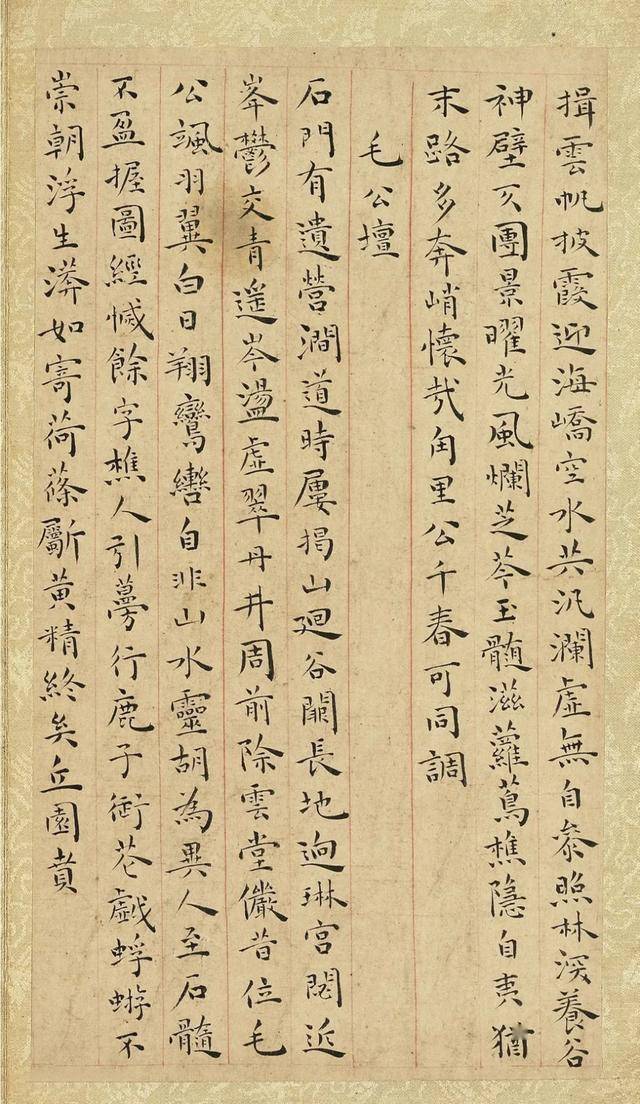 揖雲帆披霞迎海嶠空水共汎瀾虛無自叅照林深養谷
神壁又團景曜光風爛芝苓玉髓滋蘿蔦樵隱自夷猶
末路多奔峭懷哉甪里公千春可同調
毛公壇
石門有遺營澗道時屢揭山廻谷闢長地迥琳宮閟近
峯鬱交青遥岑盪虛翠丹井周前除雲堂儼昔位毛
公颯羽翼白日翔鸞轡自非山水靈胡為異人至石髓
不盈握圖經緘餘字樵人引蔓行鹿子銜花戲蜉蝣不
崇朝浮生漭如寄荷蓧斸黄精終矣丘園賁